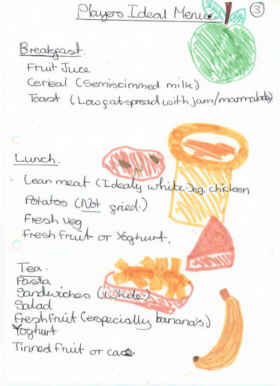 Players Ideal Menu
3
Breakfast
Fruit Juce
Cereal (Semiscimmed milk)
Toast (Low fat spread with jam/marmalade)
Lunch.
Lean meat (Idealy white eg. chicken
Potatos (Not fried.)
Fresh veg
Fresh fruit or Yoghurt.
Tea.
Pasta
Sandwiches
Salad
Fresh fruit (especially banana's.)
Yoghurt
Tinned fruit or cake